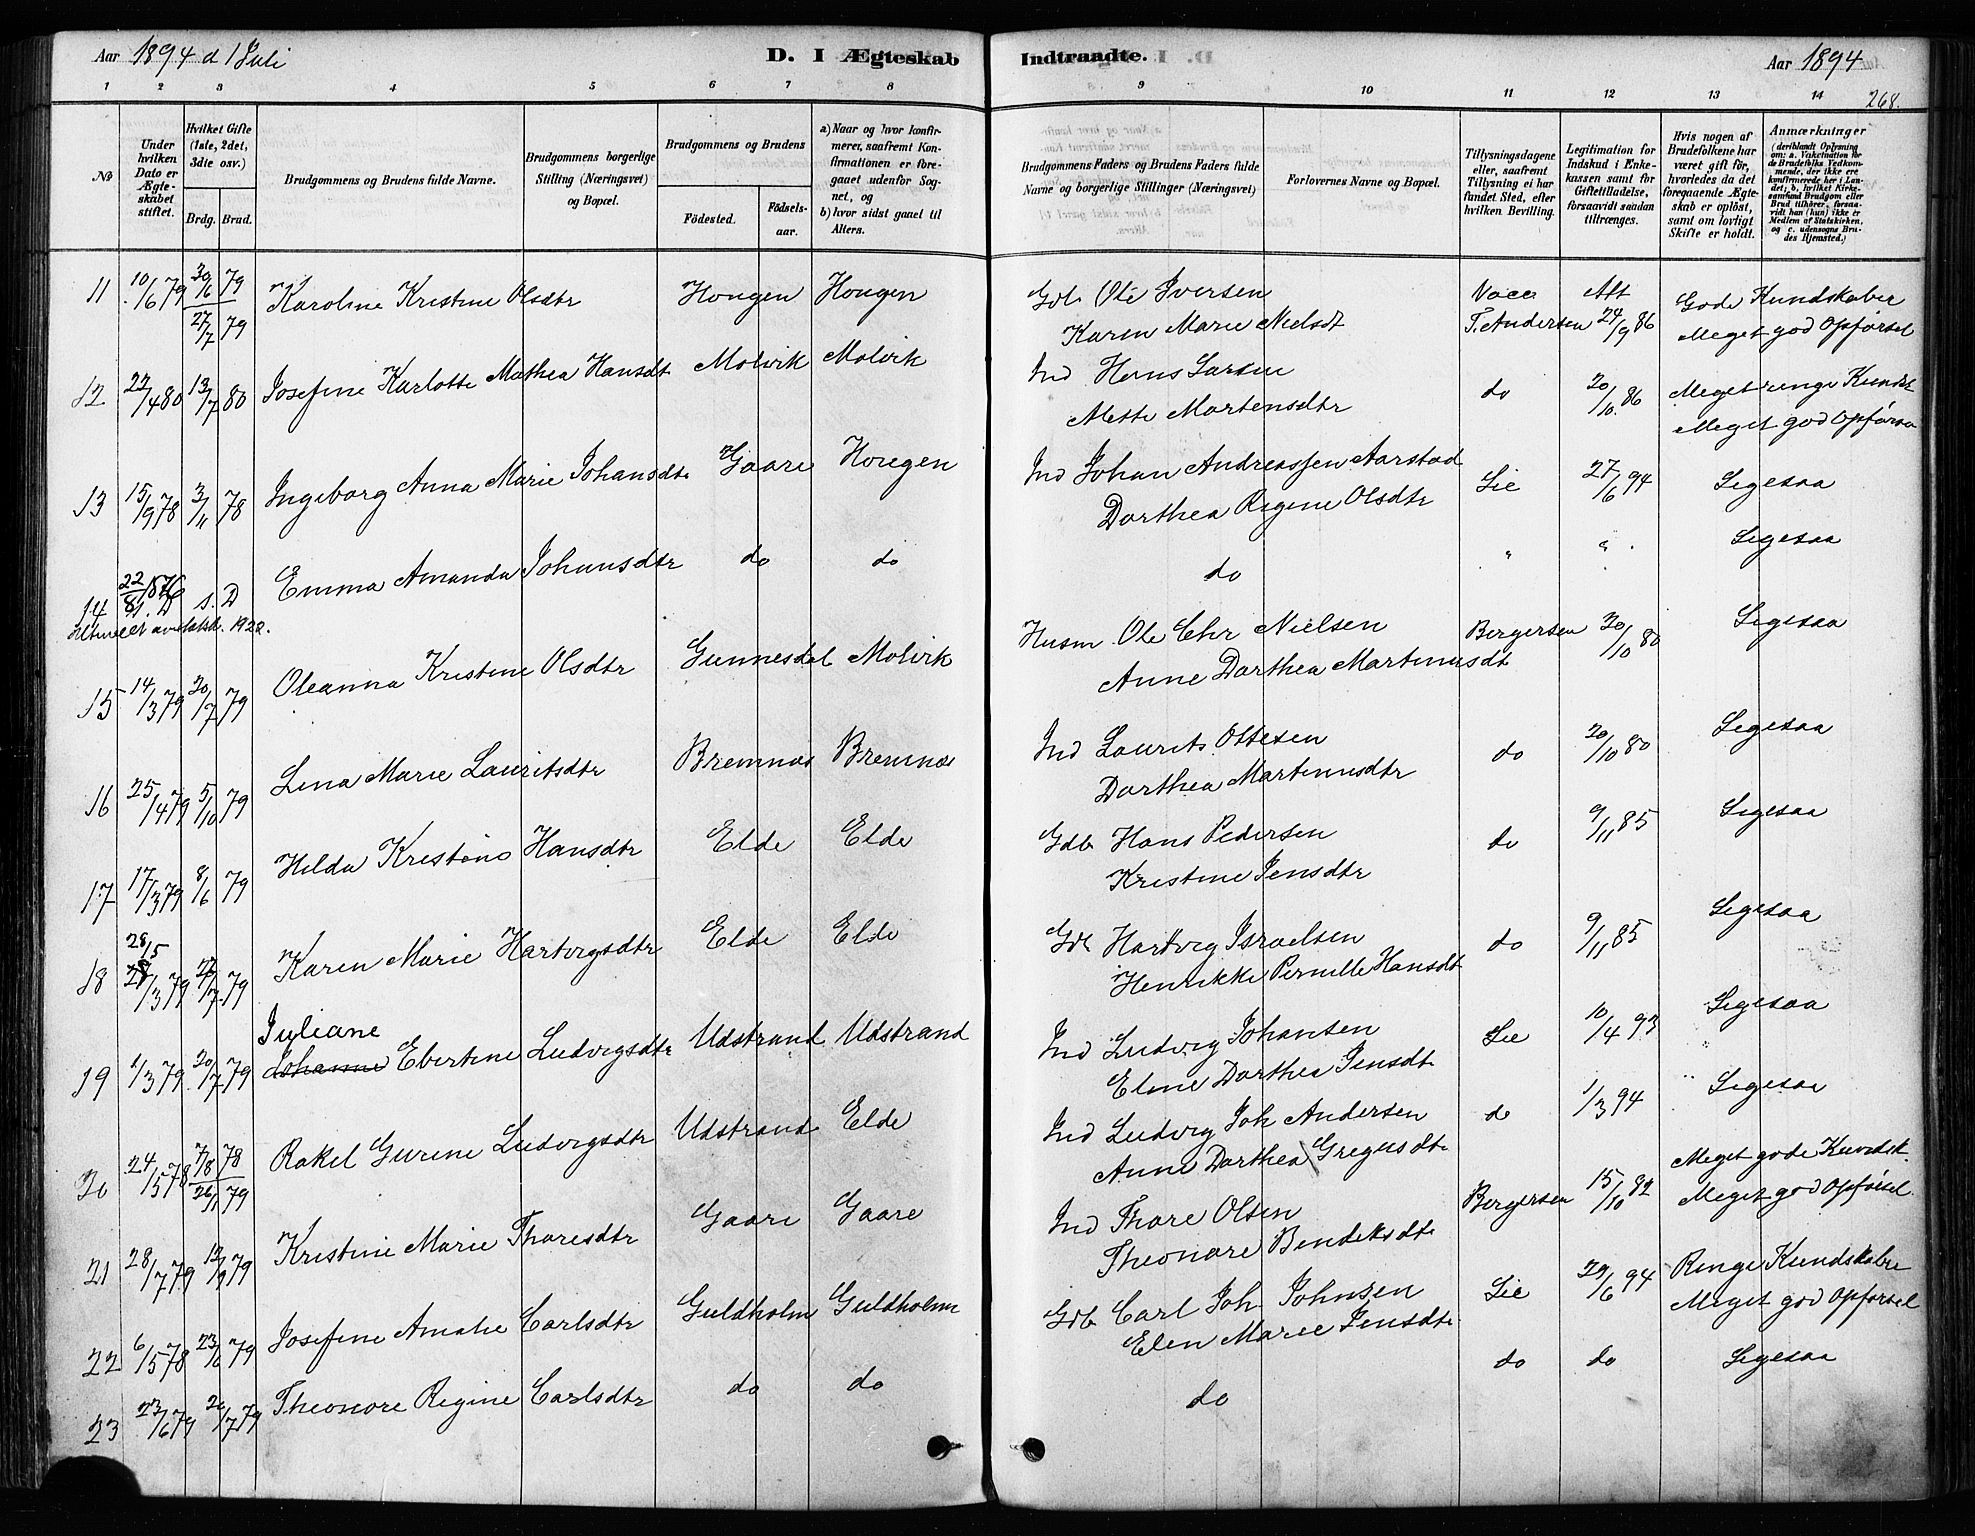 Aar 1894 d 1 Juli
D. I Ægteskab Indtraadte.
Aar 1894
268.
1 2 3 4 5 6 7 8 9 10 11 12 13 14
No
Under hvilken Dato er Ægteskabet stiftet.
Hvilket Gifte (1ste, 2det, 3die osv.)
Brdg. Brud.
Brudgommens og Brudens fulde Navne.
Brudgommens borgerlige Stilling (Næringsvei) og Bopæl.
Brudgommens og Brudens
Fødested. Fødselsaar.
a) Naar og hvor konfirmerer, saafremt Konfirmationen er foregaaet udenfor Sognet, og
b) hvor sidst gaaet til Alters.
Brudgommens Faders og Brudens Faders fulde Navne og borgerlige Stillinger (Næringsvei)
Forlovernes Navne og Bopæl.
Tillysningsdagene eller, saafremt Tillysning ei har fundet Sted, efter hvilken Bevilling.
Legitimation for Indskud i Enkekassen samt for Giftetilladelse, forsaavidt saadan tiltrænges.
Hvis nogen af Brudefolkene har været gift før, hvorledes da det foregaaende Ægteskab er opløst, samt om lovligt Skifte er holdt.
Anmærkninger (deriblandt Oplysning om: a. Vakcination for de Brudefolks Vedkommende, der ikke ere konfirmerede her i Landet; b. hvilket Kirkesamfund Brudgom eller Brud tilhører, forsaavidt han (hun) ikke er Medlem af Statskirken, og c. udensogns Brudes Hjemsted.)
11 10/6 79 30/6 79 27/7 79 Karoline Kristine Olsdtr Hougen Hougen Gdb Ole Iversen Vacc Aft Gode Kundskaber
Karen Marie Nielsdt T. Andersen 24/9 86 Meget god Opførsel
12 22/4 80 13/7 80 Josefine Karlotte Mathea Hansdt Molvik Molvik Ind Hans Larsen do 20/10 86 Meget ringe Kundsk
Mette Martensdtr Meget god Opførse
13 15/9 78 3/11 78 Ingeborg Anna Marie Johansdtr Gaare Hougen Ind Johan Andreassen Aarstad Lie 27/6 94 Ligesaa
Dorthea Regine Olsdtr
14 22/8 1876 s. D s. D Emma Amanda Johansdtr do do do " " Ligesaa
1922.
15 14/3 79 20/7 79 Oleanna Kristine Olsdtr Gunnesdal Molvik Husm Ole Chr Nielsen Bergersen 20/10 80 Ligesaa
Anne Dorthea Martinusdt
16 25/4 79 5/10 79 Lina Marie Lauritsdtr Bremnæs Bremnæs Ind Laurits Ottesen do 20/10 80 Ligesaa
Dorthea Martinusdtr
17 17/3 79 8/6 79 Hilda Kristine Hansdtr Elde Elde Gdb Hans Pedersen do 9/11 85 Ligesaa
Kristine Jensdtr
18 28/5 28/3 79 27/7 79 Karen Marie Hartvigsdtr Elde Elde Gdb Hartvig Israelsen do 9/11 85 Ligesaa
Henrikke Pernille Hansdt
Juliane
19 1/3 79 20/7 79 Johanne Ebertine Ludvigsdtr Udstrand Udstrand Ind Ludvig Johansen Lie 10/4 93 Ligesaa
Eline Dorthea Jensdt
20 24/5 78 7/8 78 26/1 79 Rakel Gurine Ludvigsdtr Udstrand Elde Ind Ludvig Joh Andersen do 1/3 94 Ligesaa
Anne Dorthea Gregusdtr
21 28/7 79 12/9 79 Kristine Marie Thoresdtr Gaare Gaare Ind Thore Olsen Bergersen 15/10 82 Meget gode Kundsk.
Theonore Bendiksdtr Meget god Opførsel
22 6/5 78 23/6 79 Josefine Amalie Carlsdtr Guldholm Guldholm Gdb Carl Joh Johnsen Lie 29/6 94 Ringe Kundskaber
Elen Marie Jensdtr Meget god Opførsel
23 23/6 79 20/7 79 Theonore Regine Carlsdtr do do do do do Ligesaa